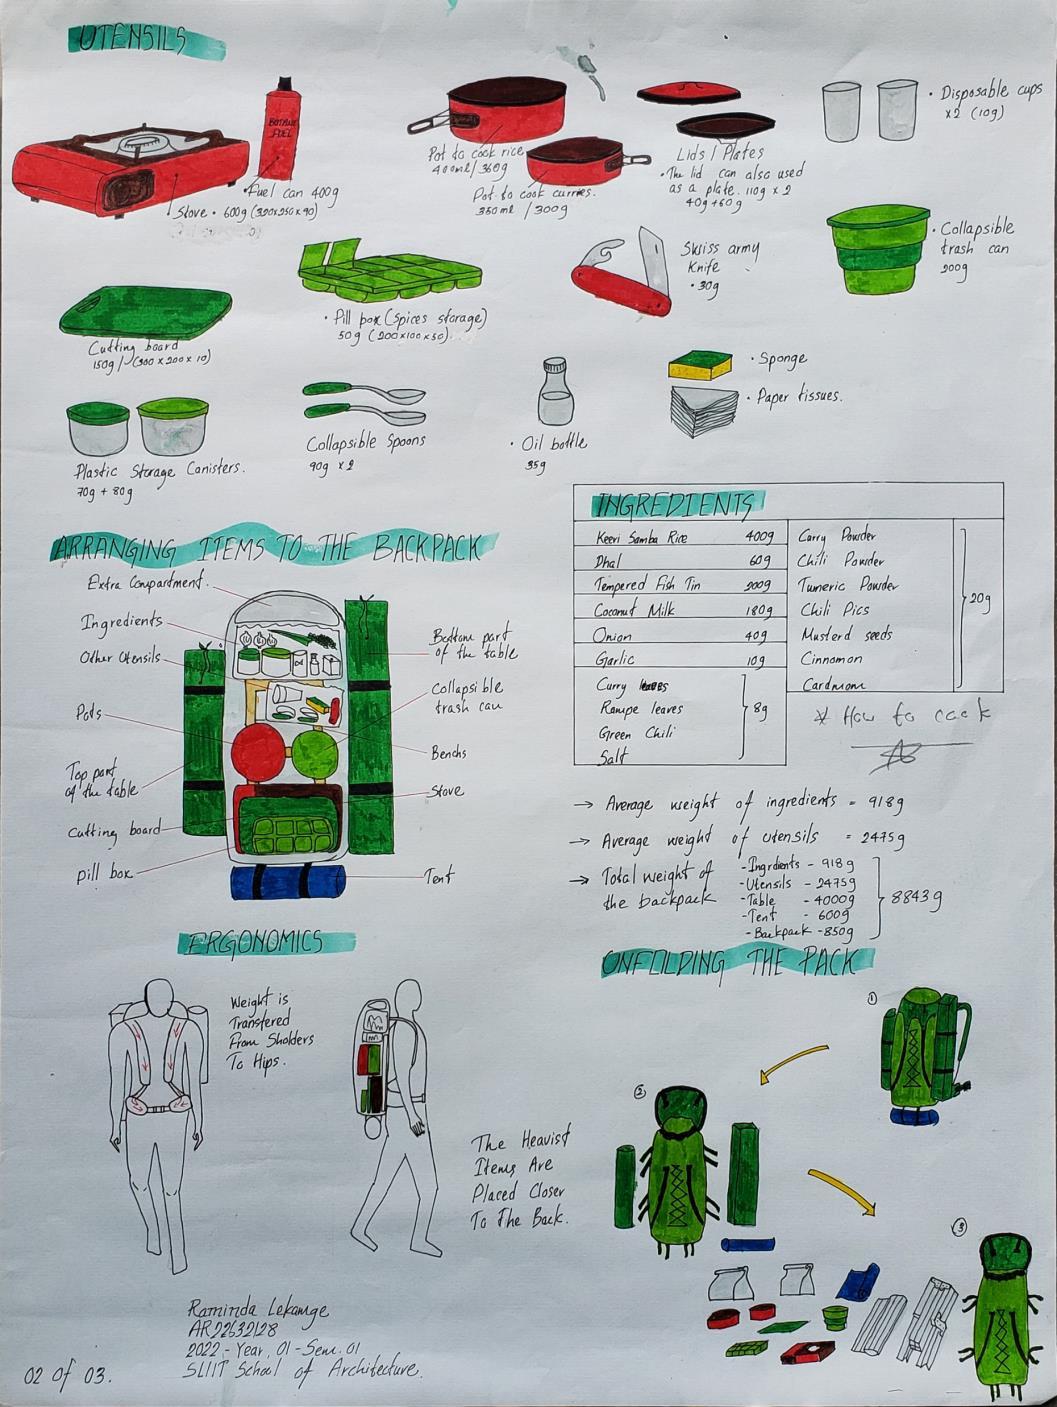 UTENSILS
BUTANE
FUEL
Fuel can 400g
Stove • 600g (320x250x90)
Pot to cook rice
400ml/360g
Pot to cook curries.
350ml /300g
Lids / Plates
• The lid can also used
as a plate. 110g x 2
40g+60g
• Disposable cups
x2 (10g)
Cutting board
150g/ (300 x 200 x 10)
• Pill box (Spices storage)
50g (200x100x50)
Swiss army
Knife
• 30g
• Collapsible
trash can
200g
Plastic Storage Canisters.
70g + 80g
Collapsible Spoons
90g x 2
• Oil bottle
35g
• Sponge
• Paper tissues.
ARRANGING ITEMS TO THE BACKPACK
Extra Compartment.
Ingredients
Other Utensils
Pots
Top part
of the table
Cutting board
pill box
Bottom part
of the table
Collapsible
trash can
Benchs
Stove
Tent
INGREDIENTS
Keeri Samba Rice 400g
Dhal 60g
Tempered Fish Tin 200g
Coconut Milk 180g
Onion 40g
Garlic 10g
Curry
Rampe leaves
Green Chili
Salt
8g
Curry Powder
Chili Powder
Tumeric Powder
Chili Pics
Musterd seeds
Cinnomon
Cardmom
20g
* How to cook
→ Average weight of ingredients = 918g
→ Average weight of utensils = 2475g
→ Total weight of
the backpack
- Ingrdients - 918g
- Utensils - 2475g
- Table - 4000g
- Tent - 600g
- Backpack - 850g
8843g
ERGONOMICS
Weight is
Transfered
From Sholders
To Hips.
The Heavist
Items Are
Placed Closer
To The Back.
UNFOLDING THE PACK
1
2
3
Raminda Lekamge
AR22632128
2022 - Year. 01 - Sem. 01
SLIIT School of Architecture.
02 Of 03.